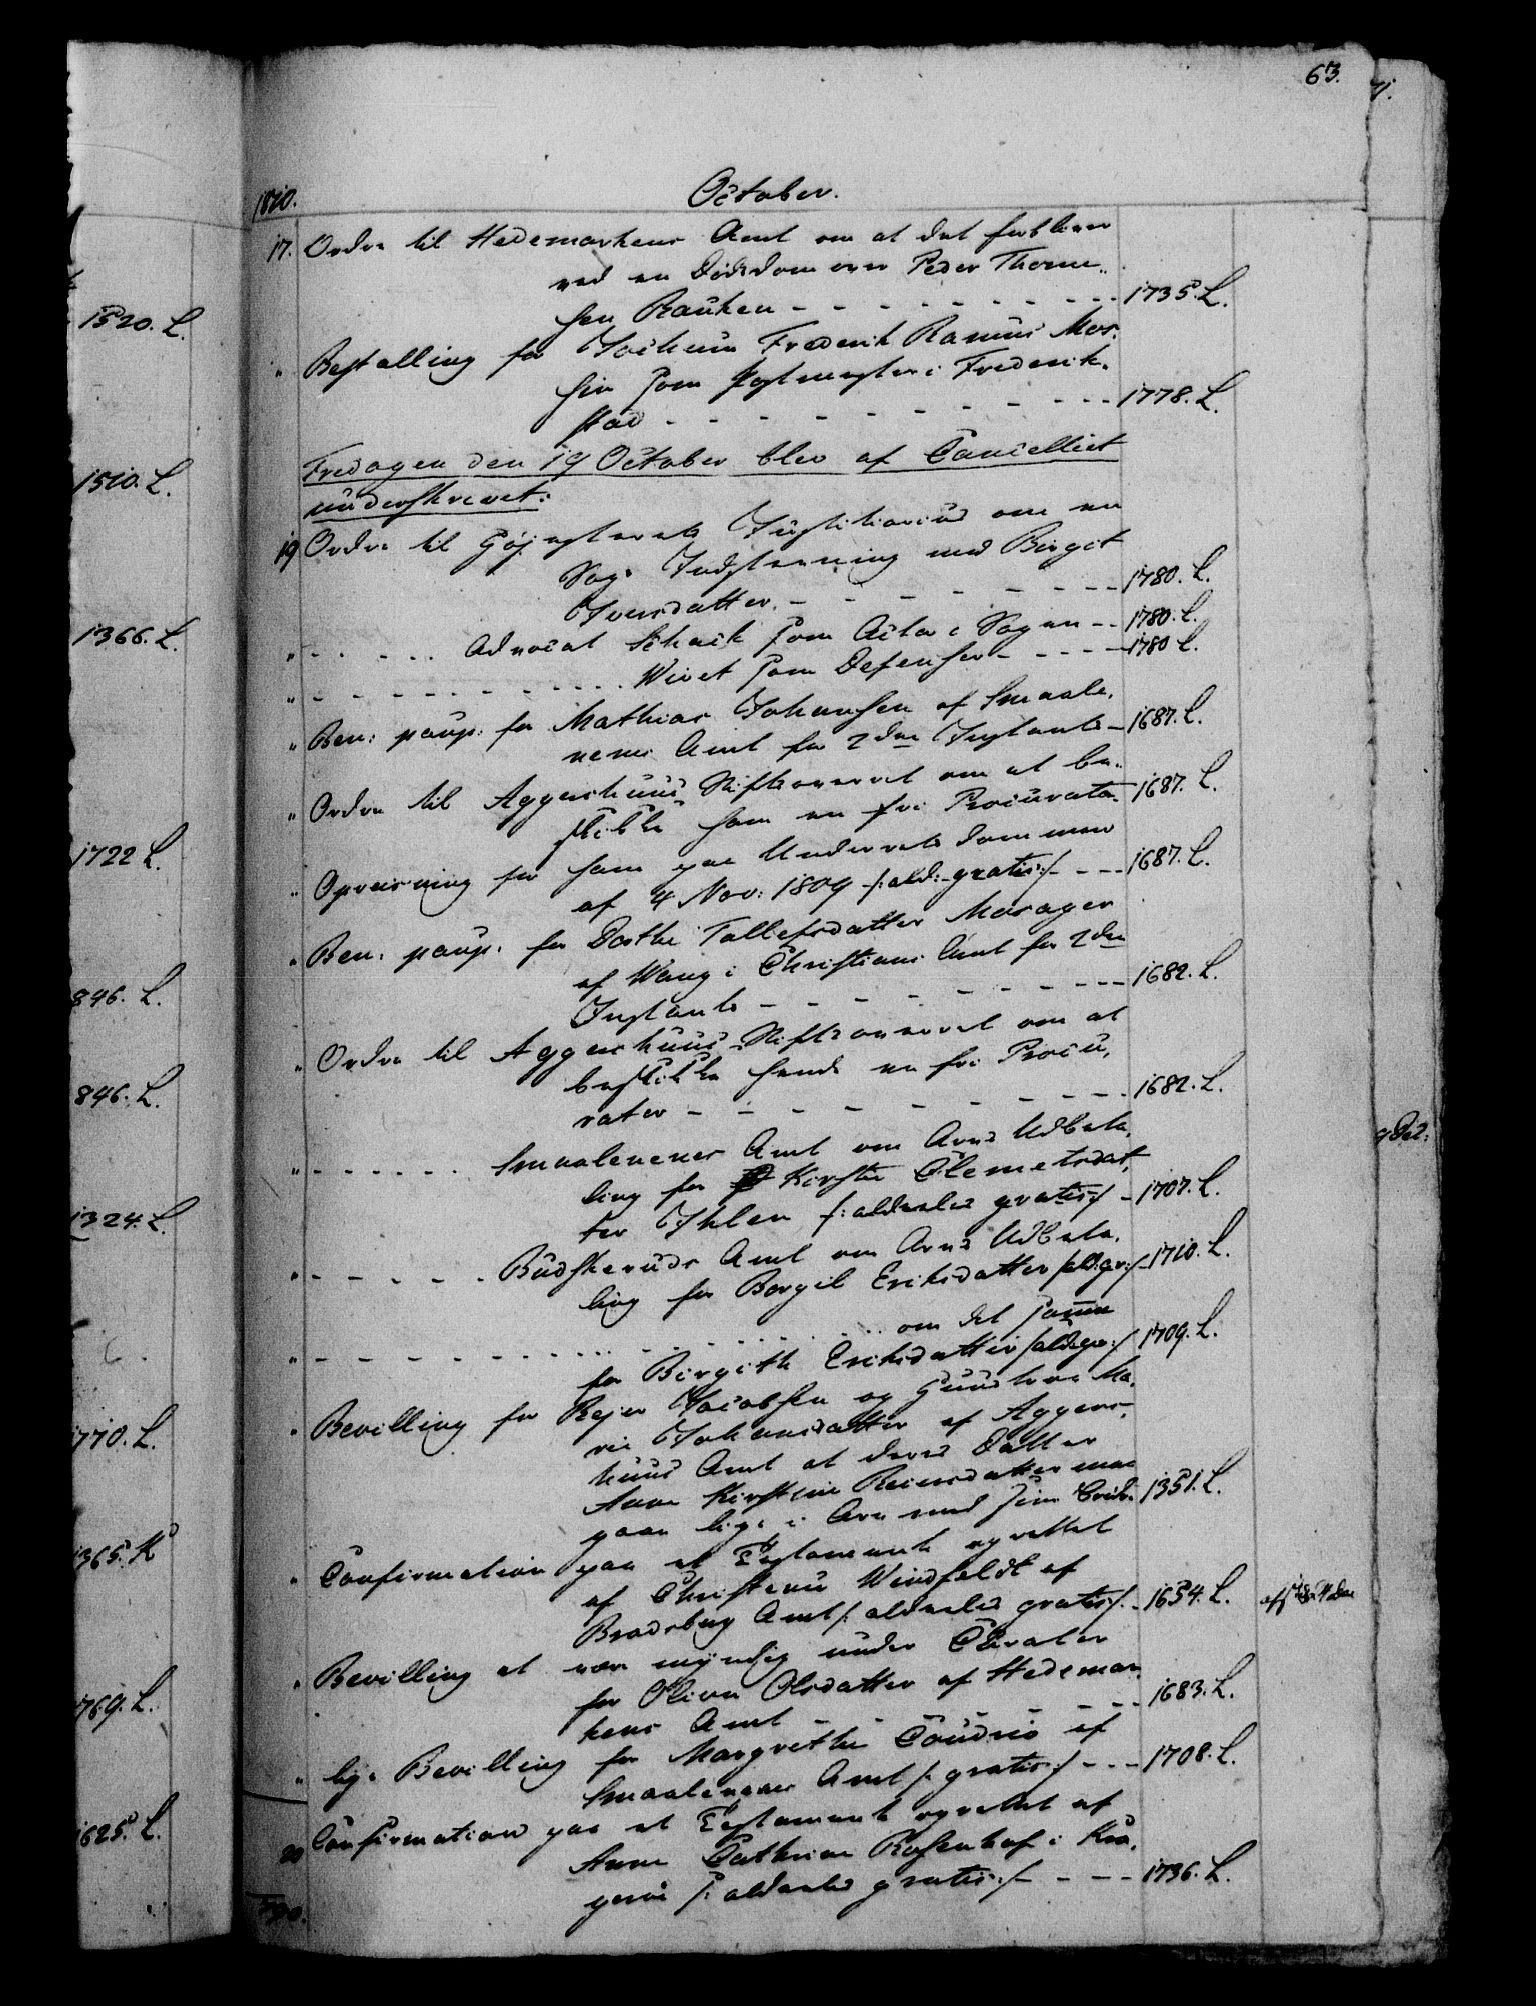 63.
1810.
October.
17. Ordre til Hedemarkens Amt om at det forbliver
ved en Dødsdom over Peder Thorne-
sen Rauken - - - 1735. L.
" Bestalling for Jochum Frederik Ramus Mor-
sin som Postmester i Frederik-
stad - - - 1778. L.
Fredagen den 19 October blev af Cancelliet
underskrevet:
19 Ordre til Høiesterets Justitiarius om en
Sags Indstevning mod Birgit
Iversdatter - - - 1780. L.
" - - - Advocat Schack som Actor i Sagen - - 1780. L.
" - - - Wivet som Defensor - - - 1780 L.
" Ben: paup: for Mathias Johansen af Smaale-
nenes Amt for 2den Instants - 1687. L.
" Ordre til Aggershuus Stiftsoverret om at be-
skikke ham en fri Procurator - 1687. L.
" Opreisning for ham paa Underrets Dommen
af 4 Nov: 1809 /: ald: gratis :/ - - - 1687. L.
" Ben: paup: for Dorthe Tollefsdatter Morager
af Wang i Christians Amt for 2den
Instants - - - 1682. L.
" Ordre til Aggershuus Stiftsoverret om at
beskikke hende en fri Procu-
rator - - - 1682. L.
" - - - Smaalenenes Amt om Arvs Udbeta-
ling for Kirstie Clemetsdat-
ter Ihlen /: aldeeles gratis :/ - 1707. L.
" - - - Budskeruds Amt om Arvs Udbeta-
ling for Borgil Eriksdatter /: ald: gr: :/ - 1710. L.
" - - - om det samme
for Birgith Eriksdatter /: ald: gr: :/ 1709. L.
" Bevilling for Rejer Jacobsen og Gunilowa Ma-
rie Johansdatter af Aggers-
huus Amt at deres Datter
Anne Kirstine Reiersdatter maa
gaae lige i Arv med sine 1351. L.
" Confirmation paa et Testamente oprettet
af Christence Windfeldt af
Bradsberg Amt /: aldeeles gratis :/ - 1654. L.
" Bevilling at være myndig under Curator
for Oliva Olsdatter af Hedemar-
kens Amt - - - 1683. L.
" lige Bevilling for Margrethe Coudrio af
Smaalenenes Amt /: gratis :/ - - - 1708. L.
20 Confirmation paa et Testamente oprettet af
Anne Cathrine Rosenhof i Kra-
gerøe /: aldeeles gratis :/ - - - 1736. L.
1520. L.
1510. L.
1366. L.
1722 L.
846. L.
846. L.
1324. L.
770. L.
365. K
769. L.
1625. L.